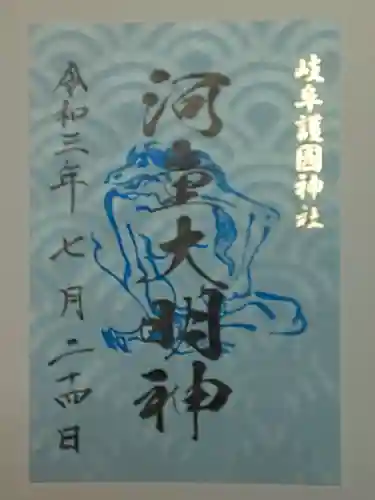 岐阜護國神社
河童大明神
令和三年七月二十四日